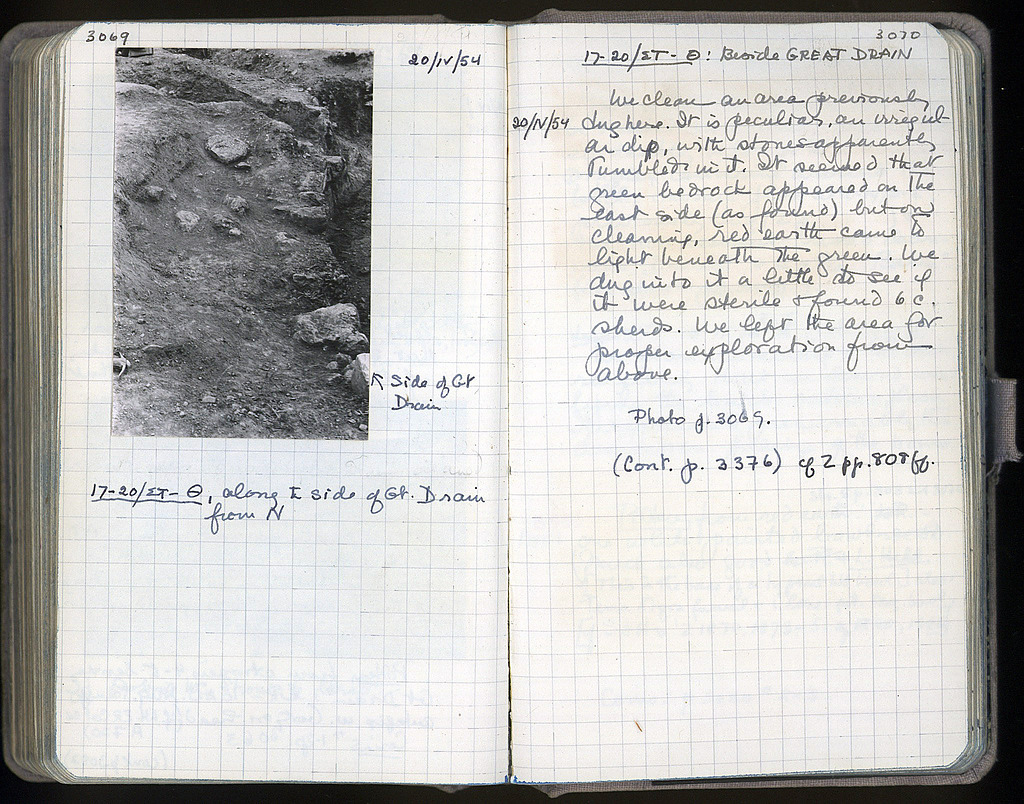 3069
20/IV/54
↖ Side of Gt
Drain
17-20/ΣΤ-Θ, along E side of Gt. Drain
from N
3070
17-20/ΣΤ-Θ: Beside GREAT DRAIN
20/IV/54
We clean an area previously
dug here. It is peculiar, an irregul-
ar dip, with stones apparently
tumbled in it. It seemed that
green bedrock appeared on the
east side (as found) but on
cleaning, red earth came to
light beneath the green. We
dug into it a little to see if
it were sterile & found 6 c.
sherds. We left the area for
proper exploration from
above.
Photo p. 3069.
(Cont. p. 3376) cf Z pp. 808 ff.